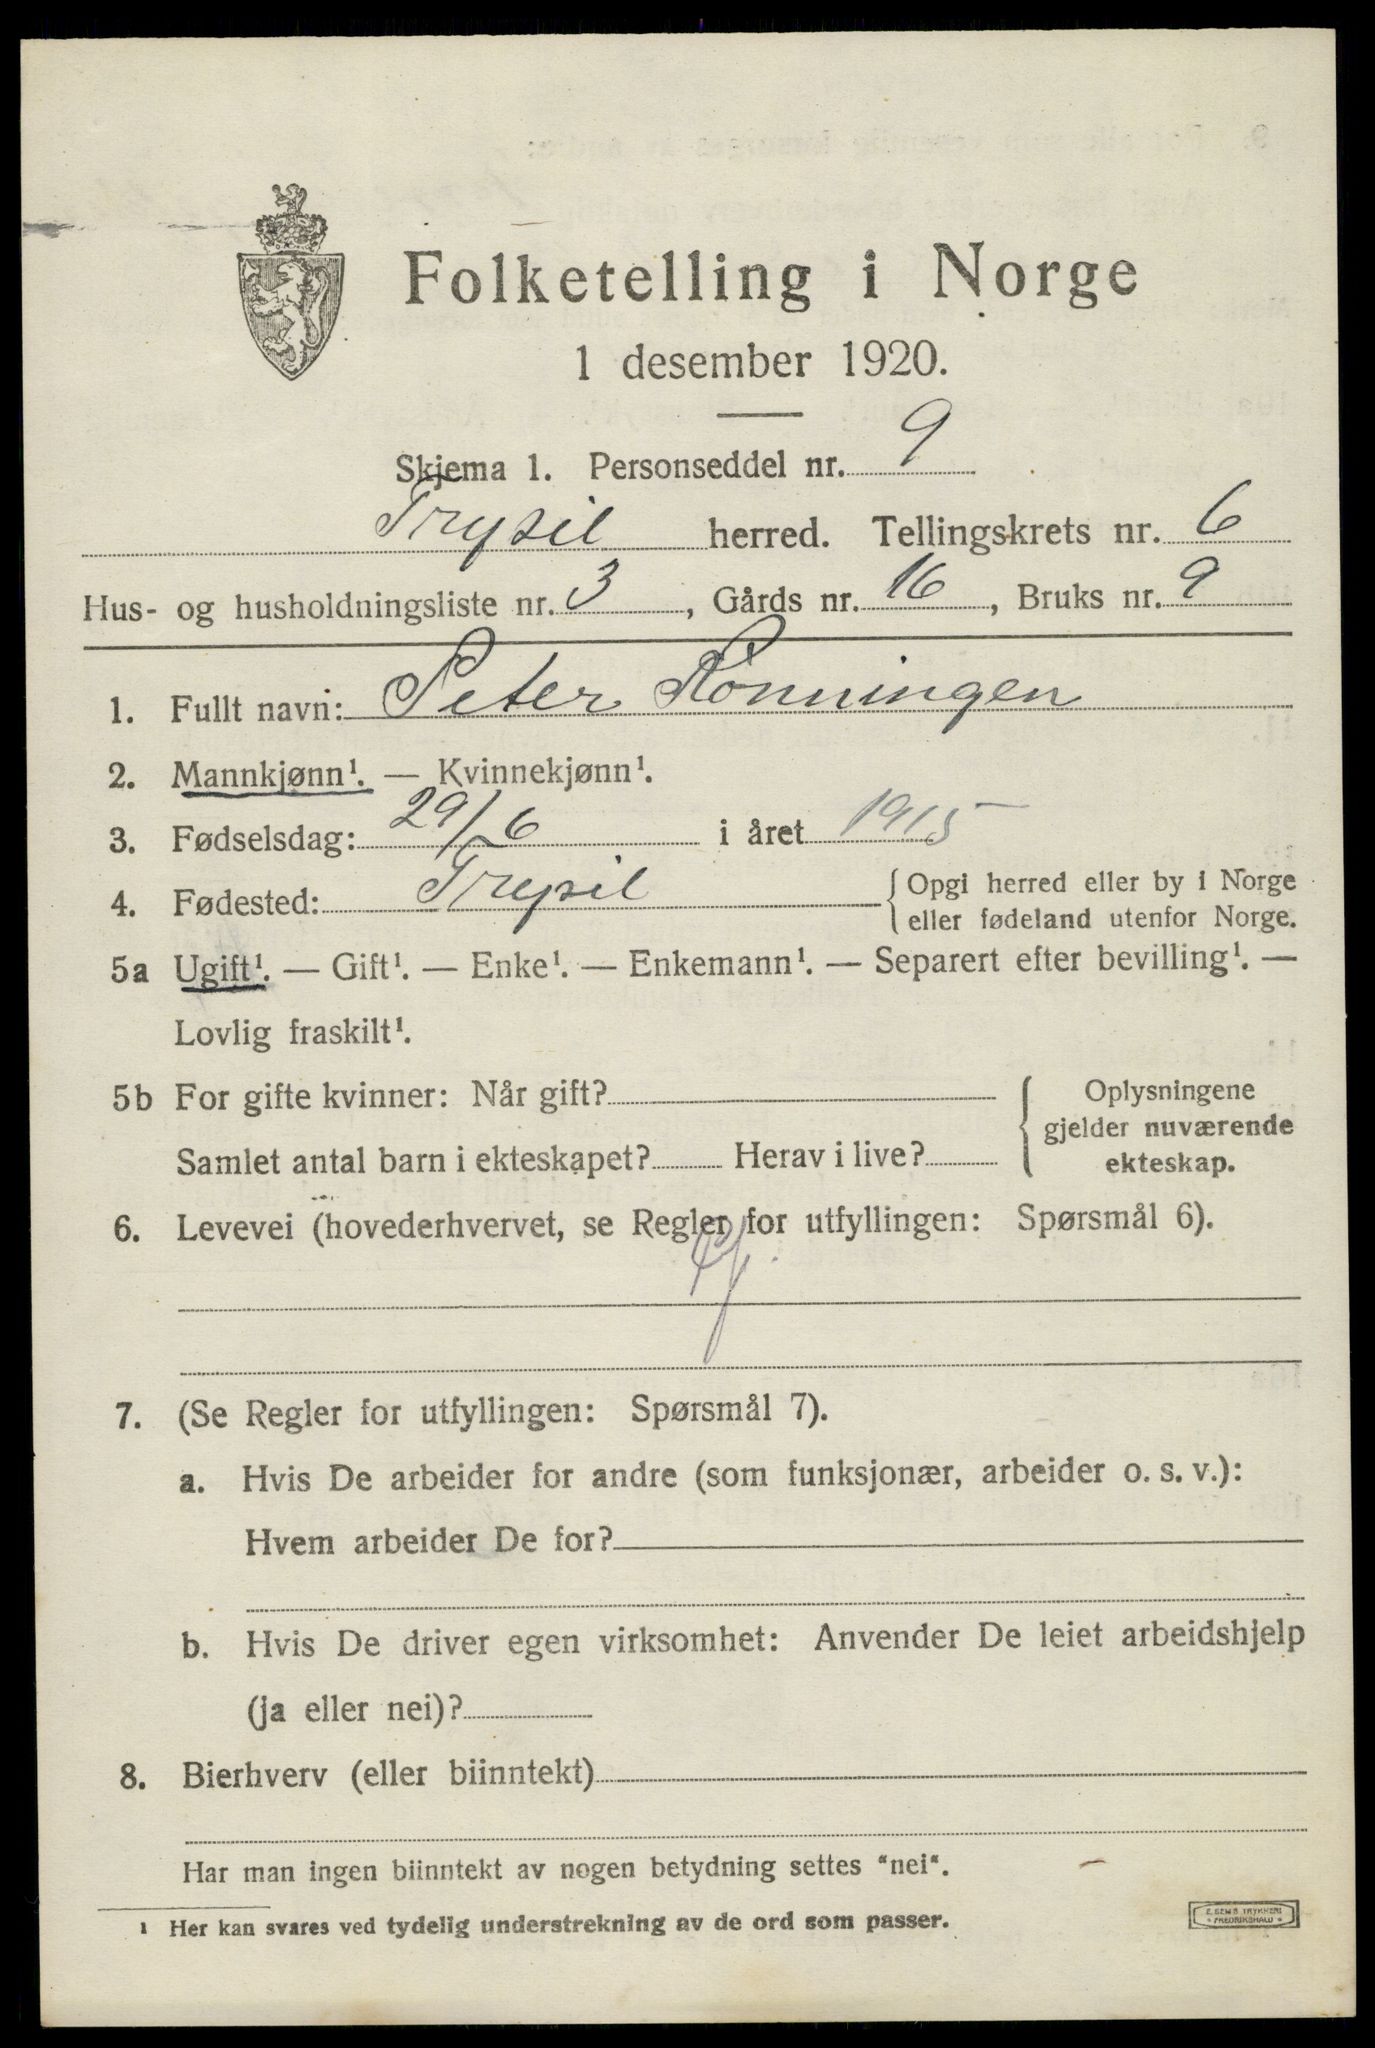 Folketelling i Norge
1 desember 1920.
Skjema 1. Personseddel nr. 9
Trysil herred. Tellingskrets nr. 6
Hus- og husholdningsliste nr. 3, Gårds nr. 16, Bruks nr. 9
1. Fullt navn: Peter Rønningen
2. Mannkjønn¹. — Kvinnekjønn¹.
3. Fødselsdag: 29/6 i året 1915
4. Fødested: Trysil {Opgi herred eller by i Norge
eller fødeland utenfor Norge.
5a Ugift¹. — Gift¹. — Enke¹. — Enkemann¹. — Separert efter bevilling¹. —
Lovlig fraskilt¹.
5b For gifte kvinner: Når gift?
Samlet antal barn i ekteskapet? Herav i live?
Oplysningene
gjelder nuværende
ekteskap.
6. Levevei (hovederhvervet, se Regler for utfyllingen: Spørsmål 6).
7. (Se Regler for utfyllingen: Spørsmål 7).
a. Hvis De arbeider for andre (som funksjonær, arbeider o. s. v.):
Hvem arbeider De for?
b. Hvis De driver egen virksomhet: Anvender De leiet arbeidshjelp
(ja eller nei)?
8. Bierhverv (eller biinntekt)
Har man ingen biinntekt av nogen betydning settes "nei".
¹ Her kan svares ved tydelig understrekning av de ord som passer.
E. SEM'S TRYKKERI
FREDRIKSHALD